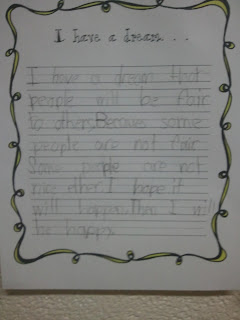 I have a dream. . .
I have a dream that
people will be fair
to others.Becaues some
people are not fair.
Some people are not
nice ether.I hope it
will happen.Then I will
be happy.